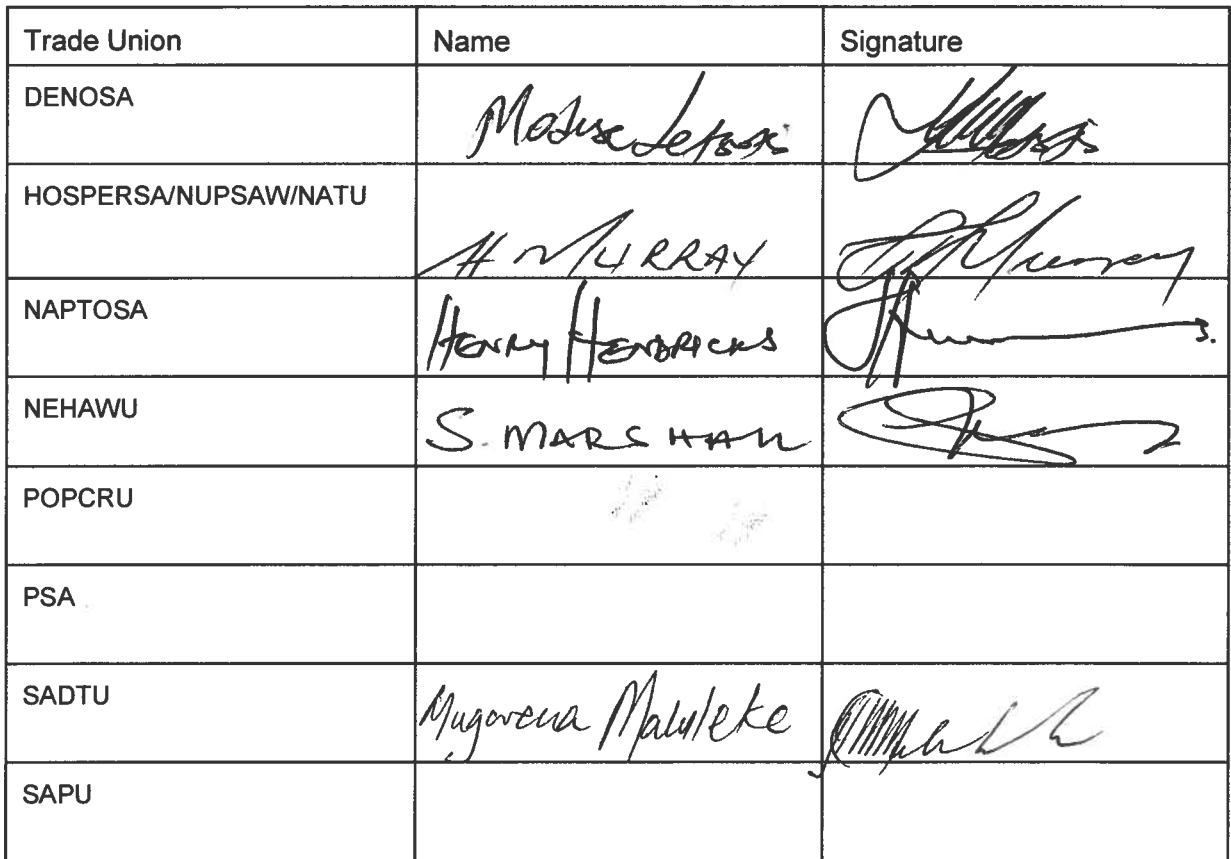 Trade Union Name Signature
DENOSA
HOSPERSA/NUPSAW/NATU H MURRAY
NAPTOSA HENRY HENDRICKS
NEHAWU S. MARSHALL
POPCRU
PSA
SADTU Mugwena Maluleke
SAPU